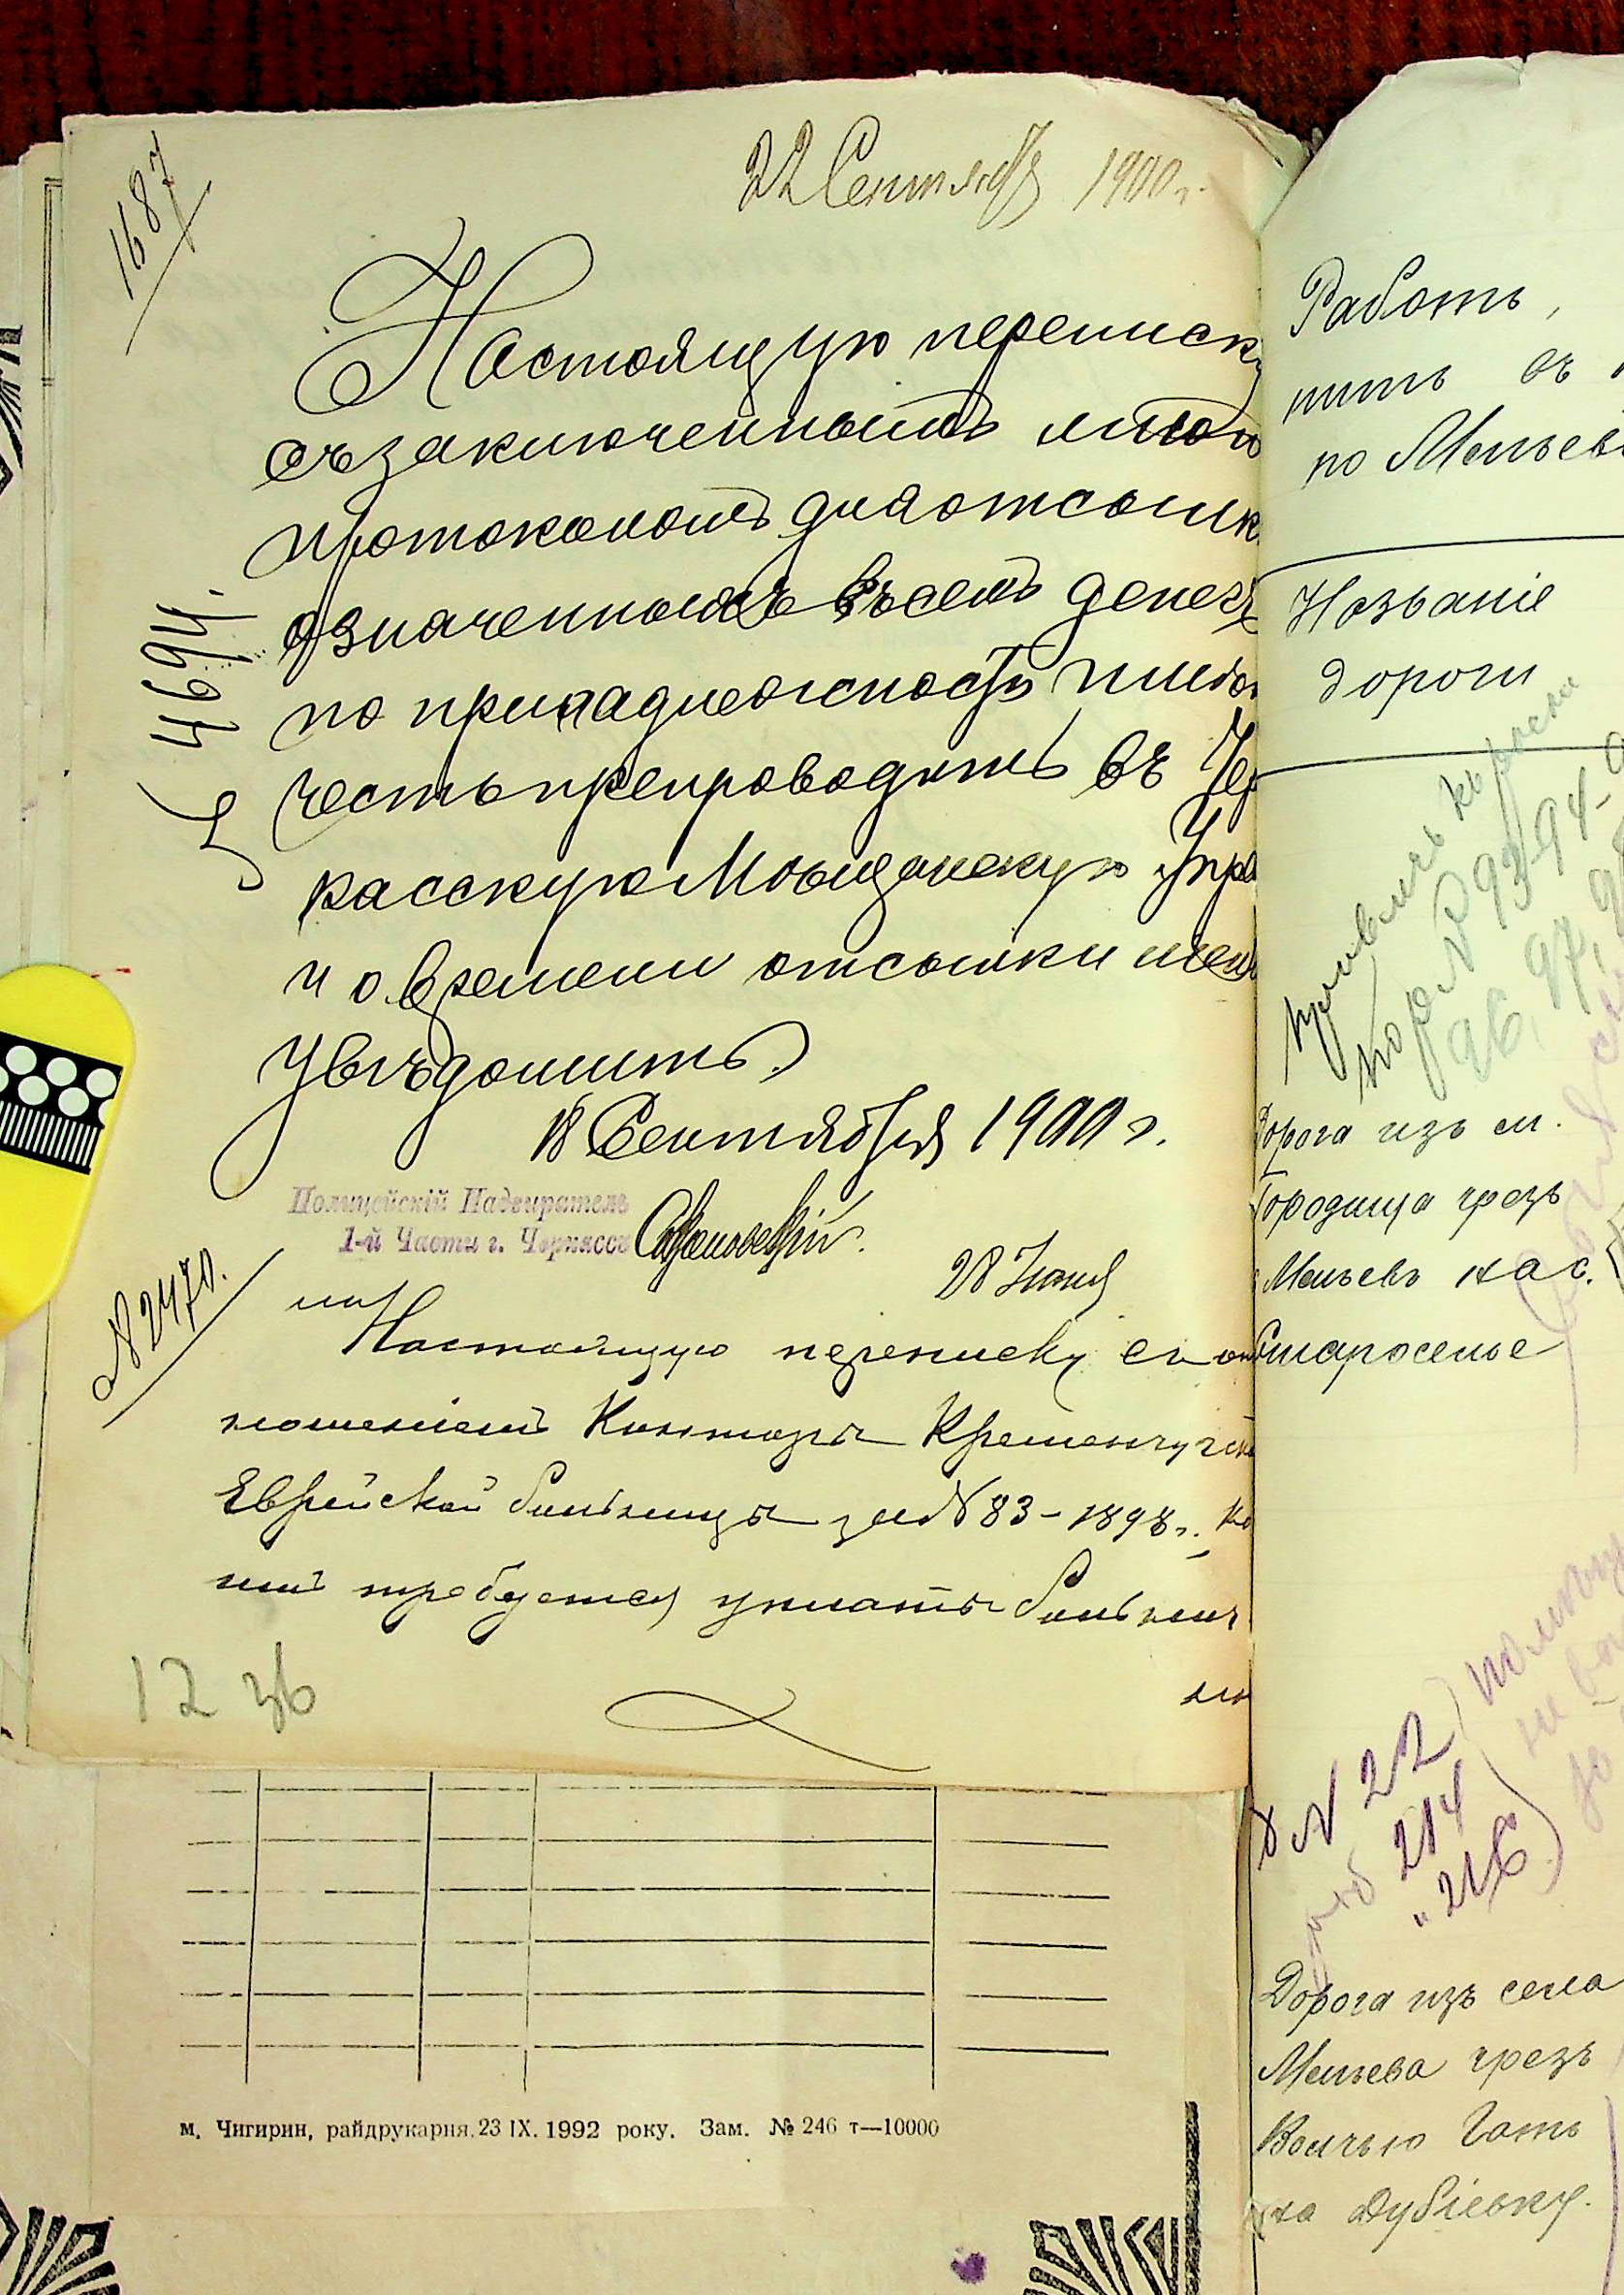 22 Сентября 1900 г.
1687
Настоящую переписк
съ заключеннымъ мною
протоколомъ для отсылк
означенныхъ въ семъ денегъ
по принадлежности имею
честь препроводить въ Чер
касскую Мѣщанскую Упра
и о времени отсылки меня
увѣдомить.
4694.
18 Сентября 1900 г.
Полицейскій Надзиратель
1-й Части г. Черкассъ
28 Іюня
№ 2470.
Настоящую переписку съ от
ношеніемъ Конторы Кременчугско
Еврейской больницы за № 83 - 1898 г. ко
имъ требуется уплаты больнич
12 36
м. Чигирин, райдрукарня. 23 IX. 1992 року. Зам. № 246 т—10000
Работъ,
въ
по Мліевъ
Названіе
дороги
къ
№ 93, 94,
96, 97,
Дорога изъ м.
Городища чрезъ
Мліевъ на с.
Староселье
№ 22
214
"216
Дорога изъ села
Мліева чрезъ
Волчью Гать
на Дубіевку.